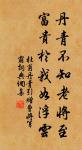 丹青不知老將至
富貴於我如浮雲
杜甫丹青引贈曹將軍
霸詞典調集